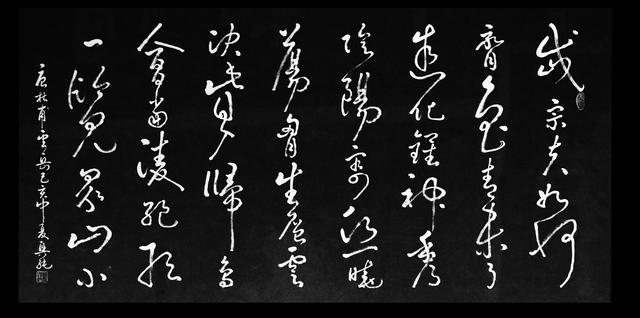 岱宗夫如何
齊魯青未了
造化鍾神秀
陰陽割昏曉
蕩胷生層雲
決眥入歸鳥
會當凌絕頂
一覽眾山小
唐杜甫望岳己亥仲夏